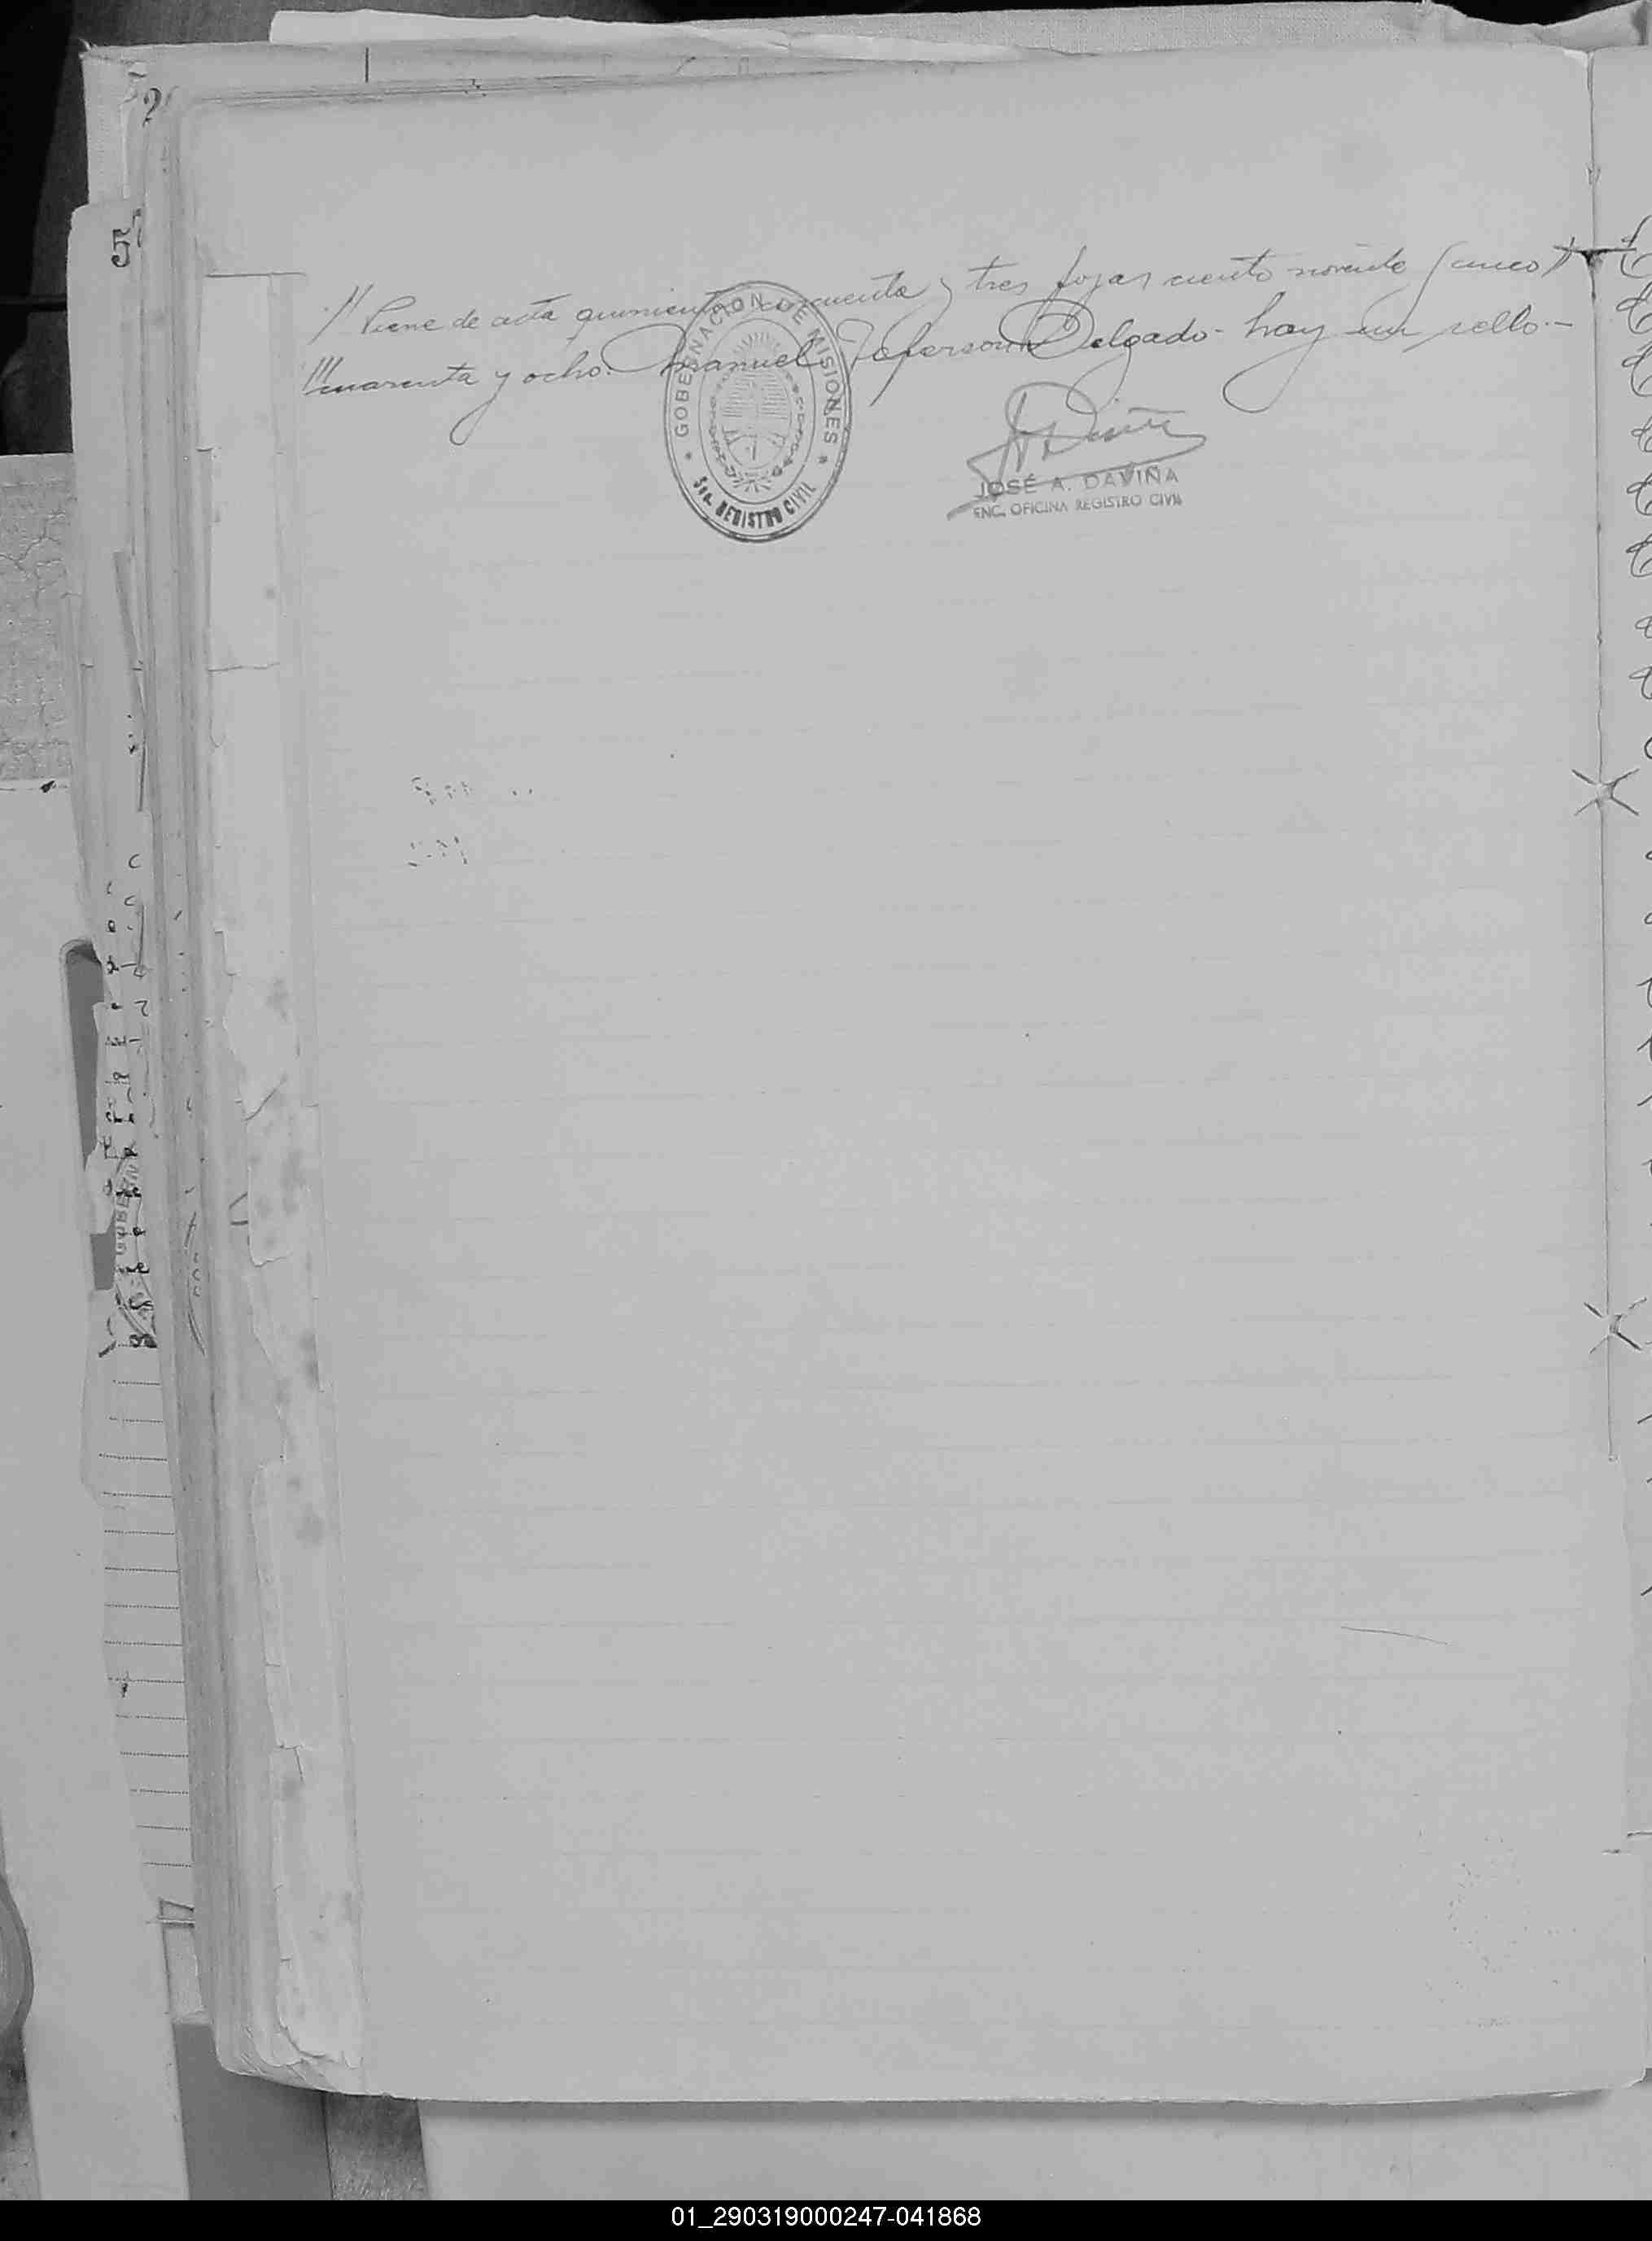 // Viene de acta quinientos cincuenta y tres fojas ciento noventa y cinco //
///cuarenta y ocho. Manuel Jeferson Delgado - hay un sello.-
GOBERNACION DE MISIONES
REGISTRO CIVIL
JOSÉ A. DAVIÑA
ENC. OFICINA REGISTRO CIVIL
5
01_290319000247-041868